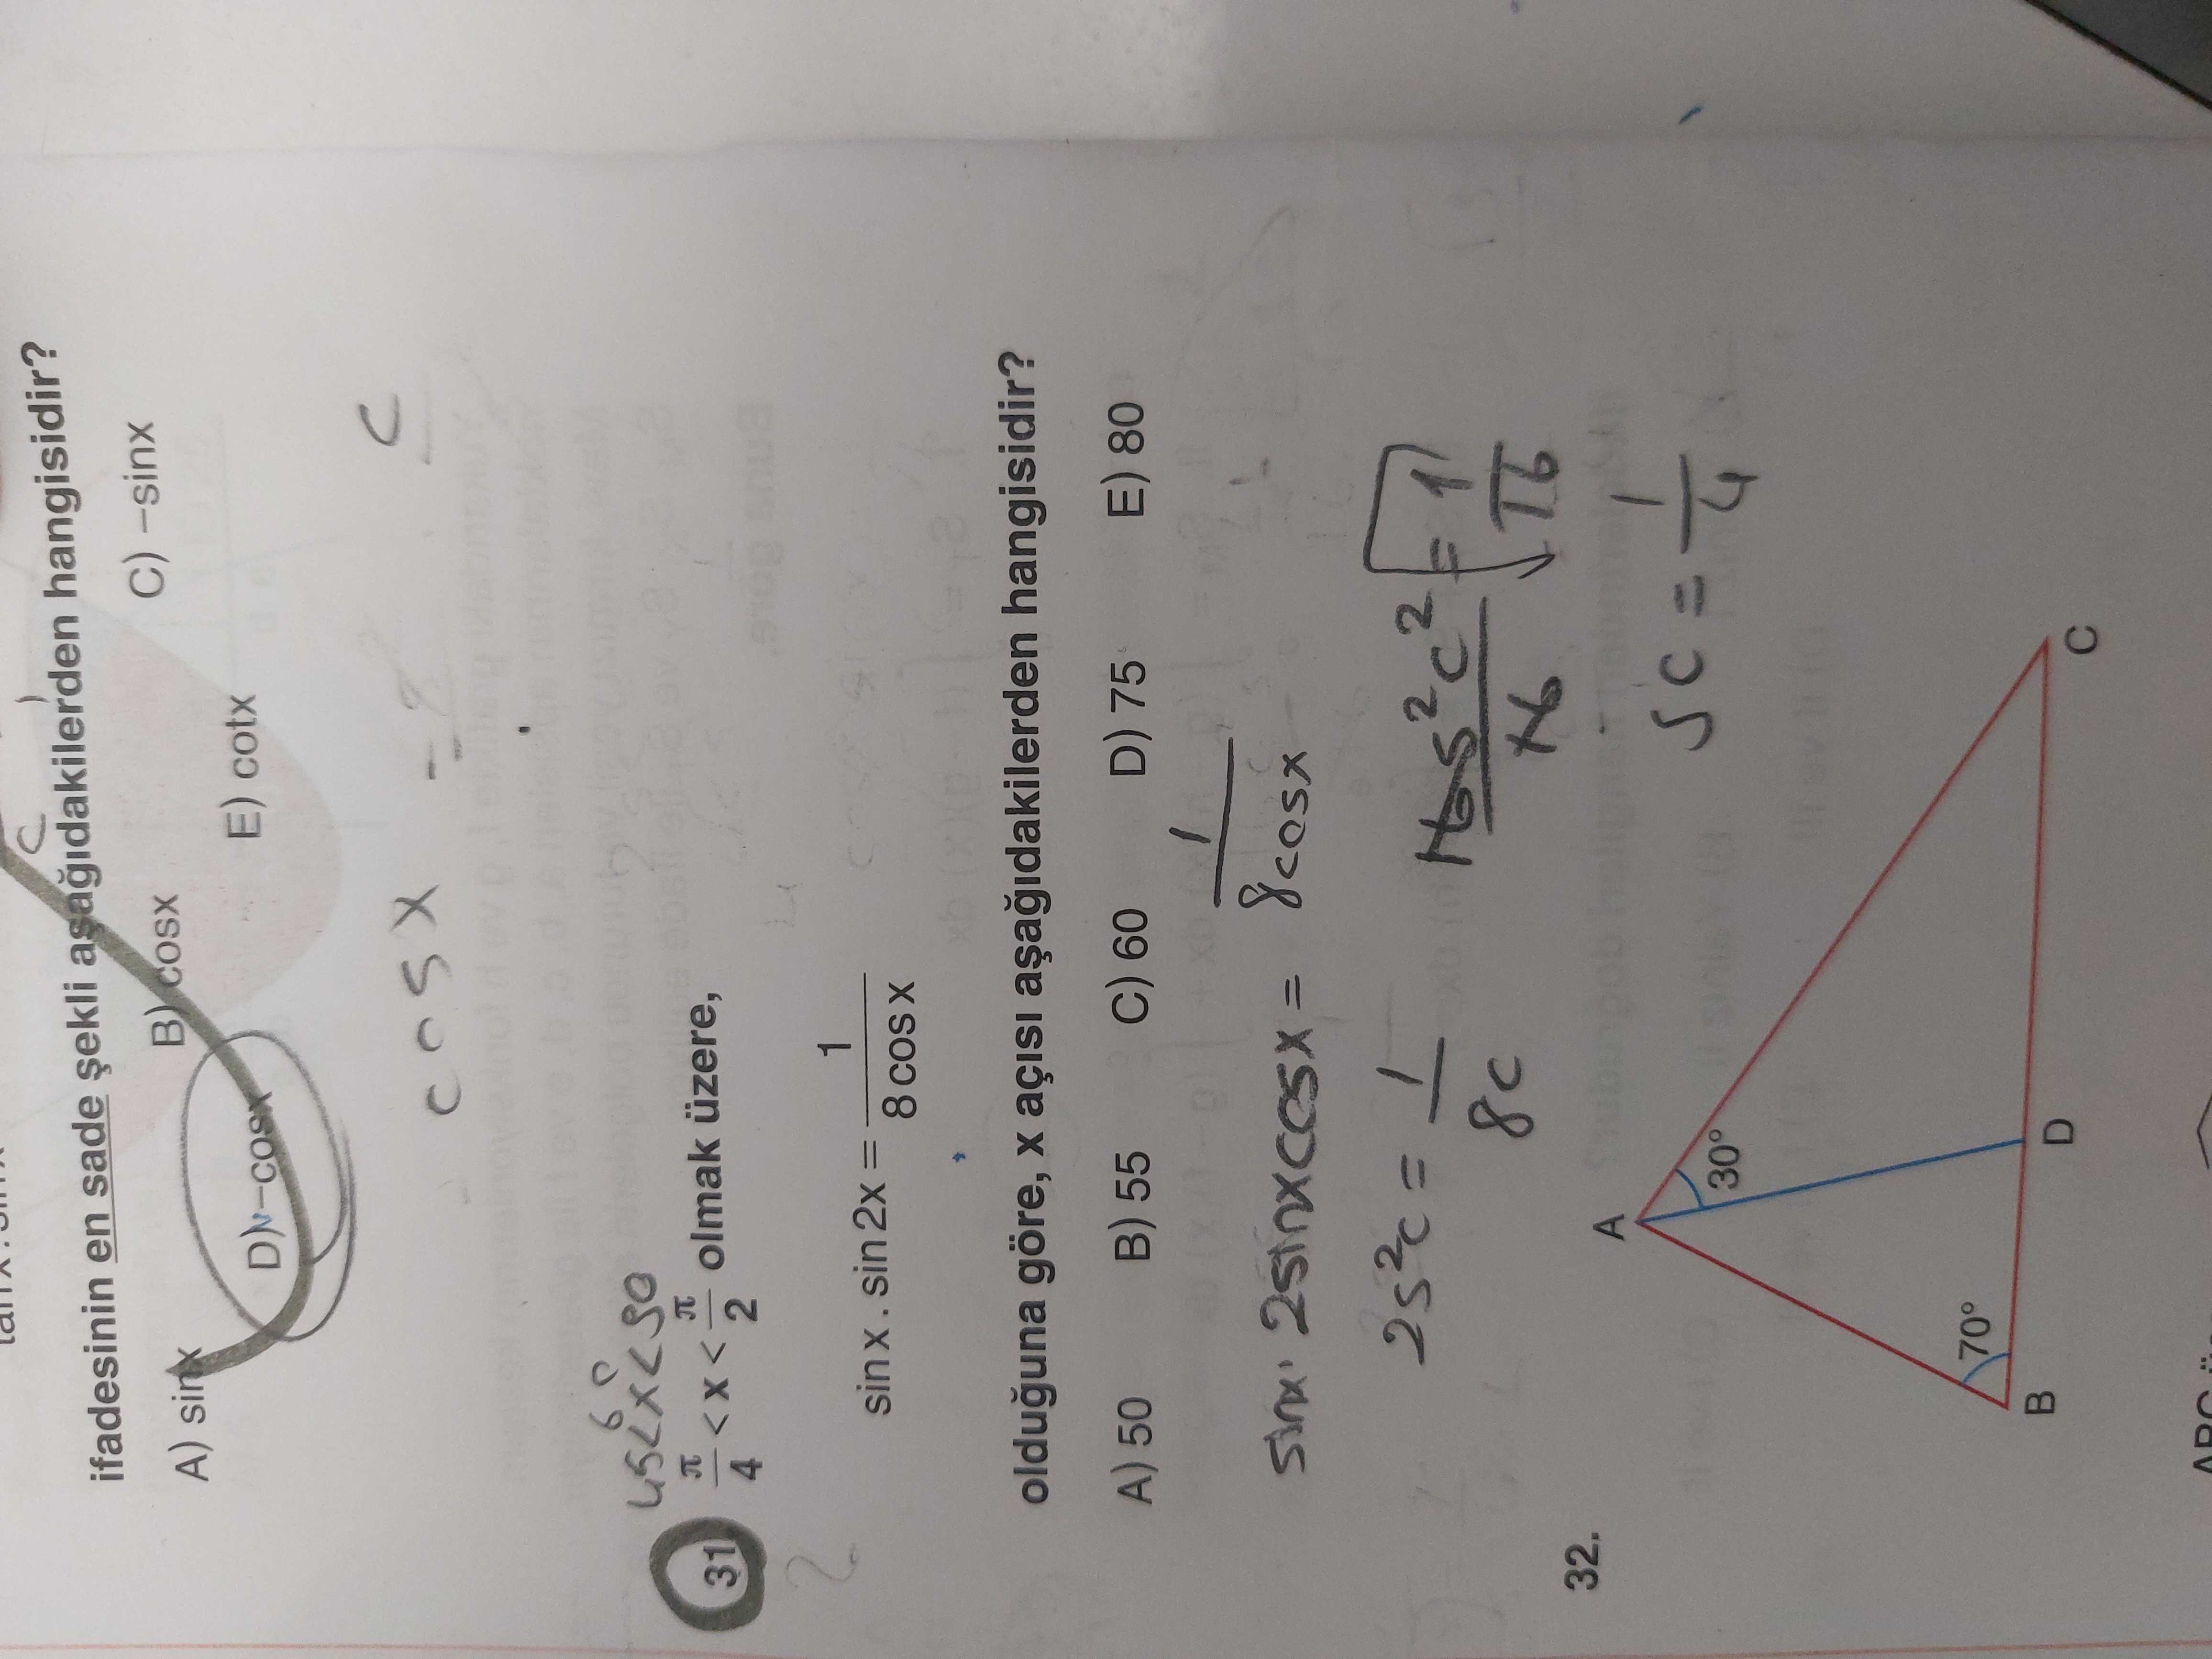 ifadesinin en sade şekli aşağıdakilerden hangisidir?
A) sinx B) cosx C) –sinx
D) –cosx E) cotx
cosx
c
45<x<90
60
31 π/4 < x < π/2 olmak üzere,
sinx . sin2x = 1/(8cosx)
olduğuna göre, x açısı aşağıdakilerden hangisidir?
A) 50 B) 55 C) 60 D) 75 E) 80
sinx. 2sinxcosx = 1/(8cosx)
2s²c = 1/(8c) 16s²c²/16 = 1/16
sc = 1/4
32.
A
30°
70°
B D C